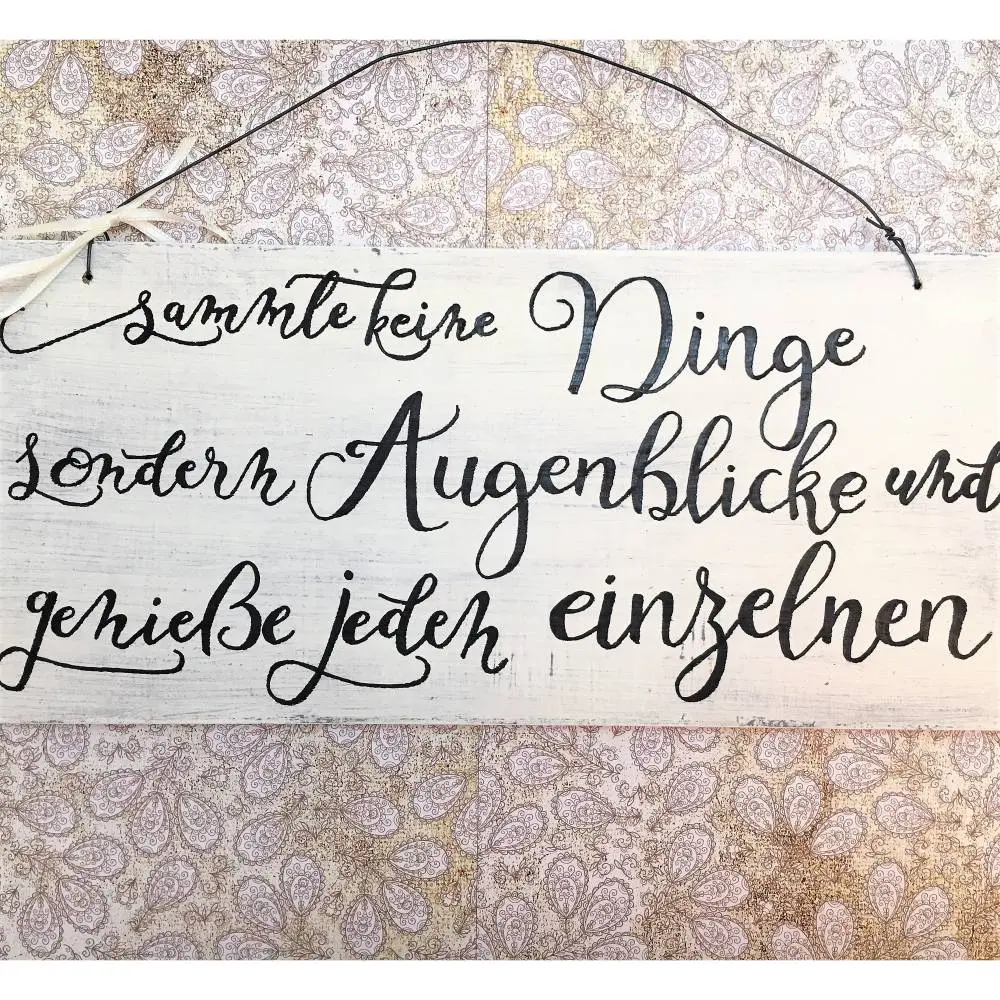 sammle keine Dinge
sondern Augenblicke und
genieße jeden einzelnen